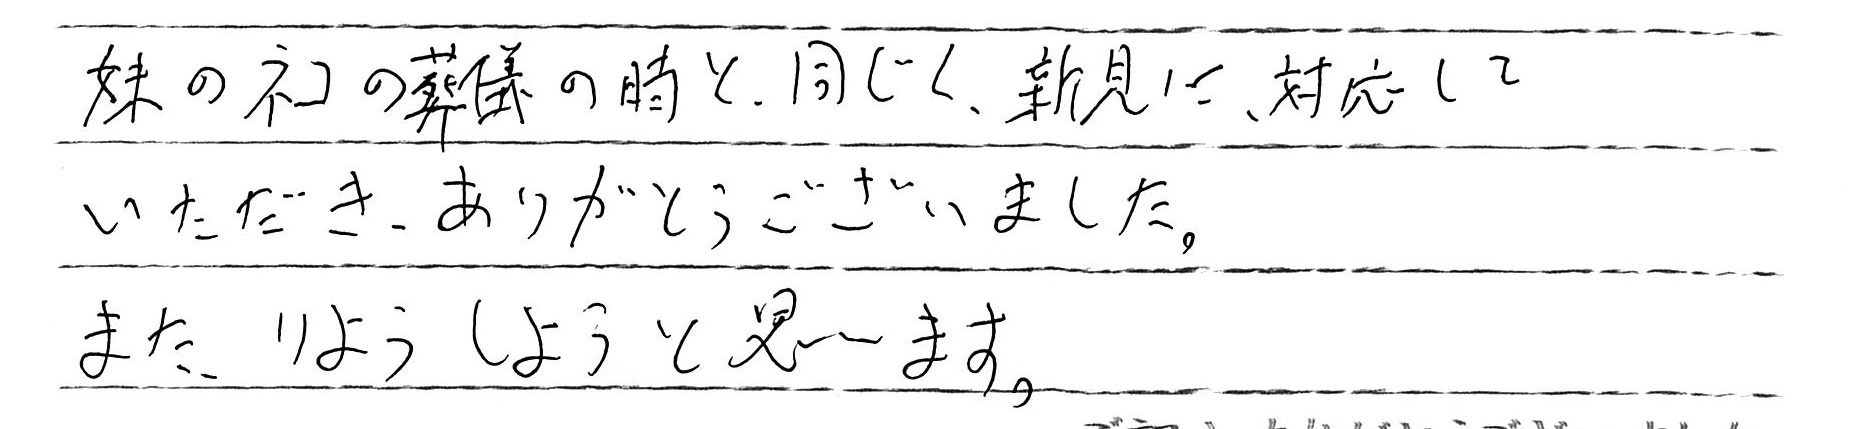 妹のネコの葬儀の時と、同じく、新見に、対応して
いただき、ありがとうございました。
また、りようしようと思います。